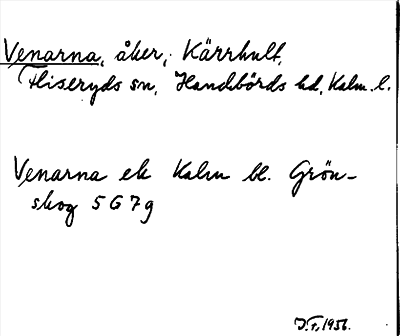 Venarna, åker, Kärrhult,
Fliseryds sn, Handbörds hd, Kalm. l.
Venarna ek Kalm bl. Grön-
skog 5G7g
1956.